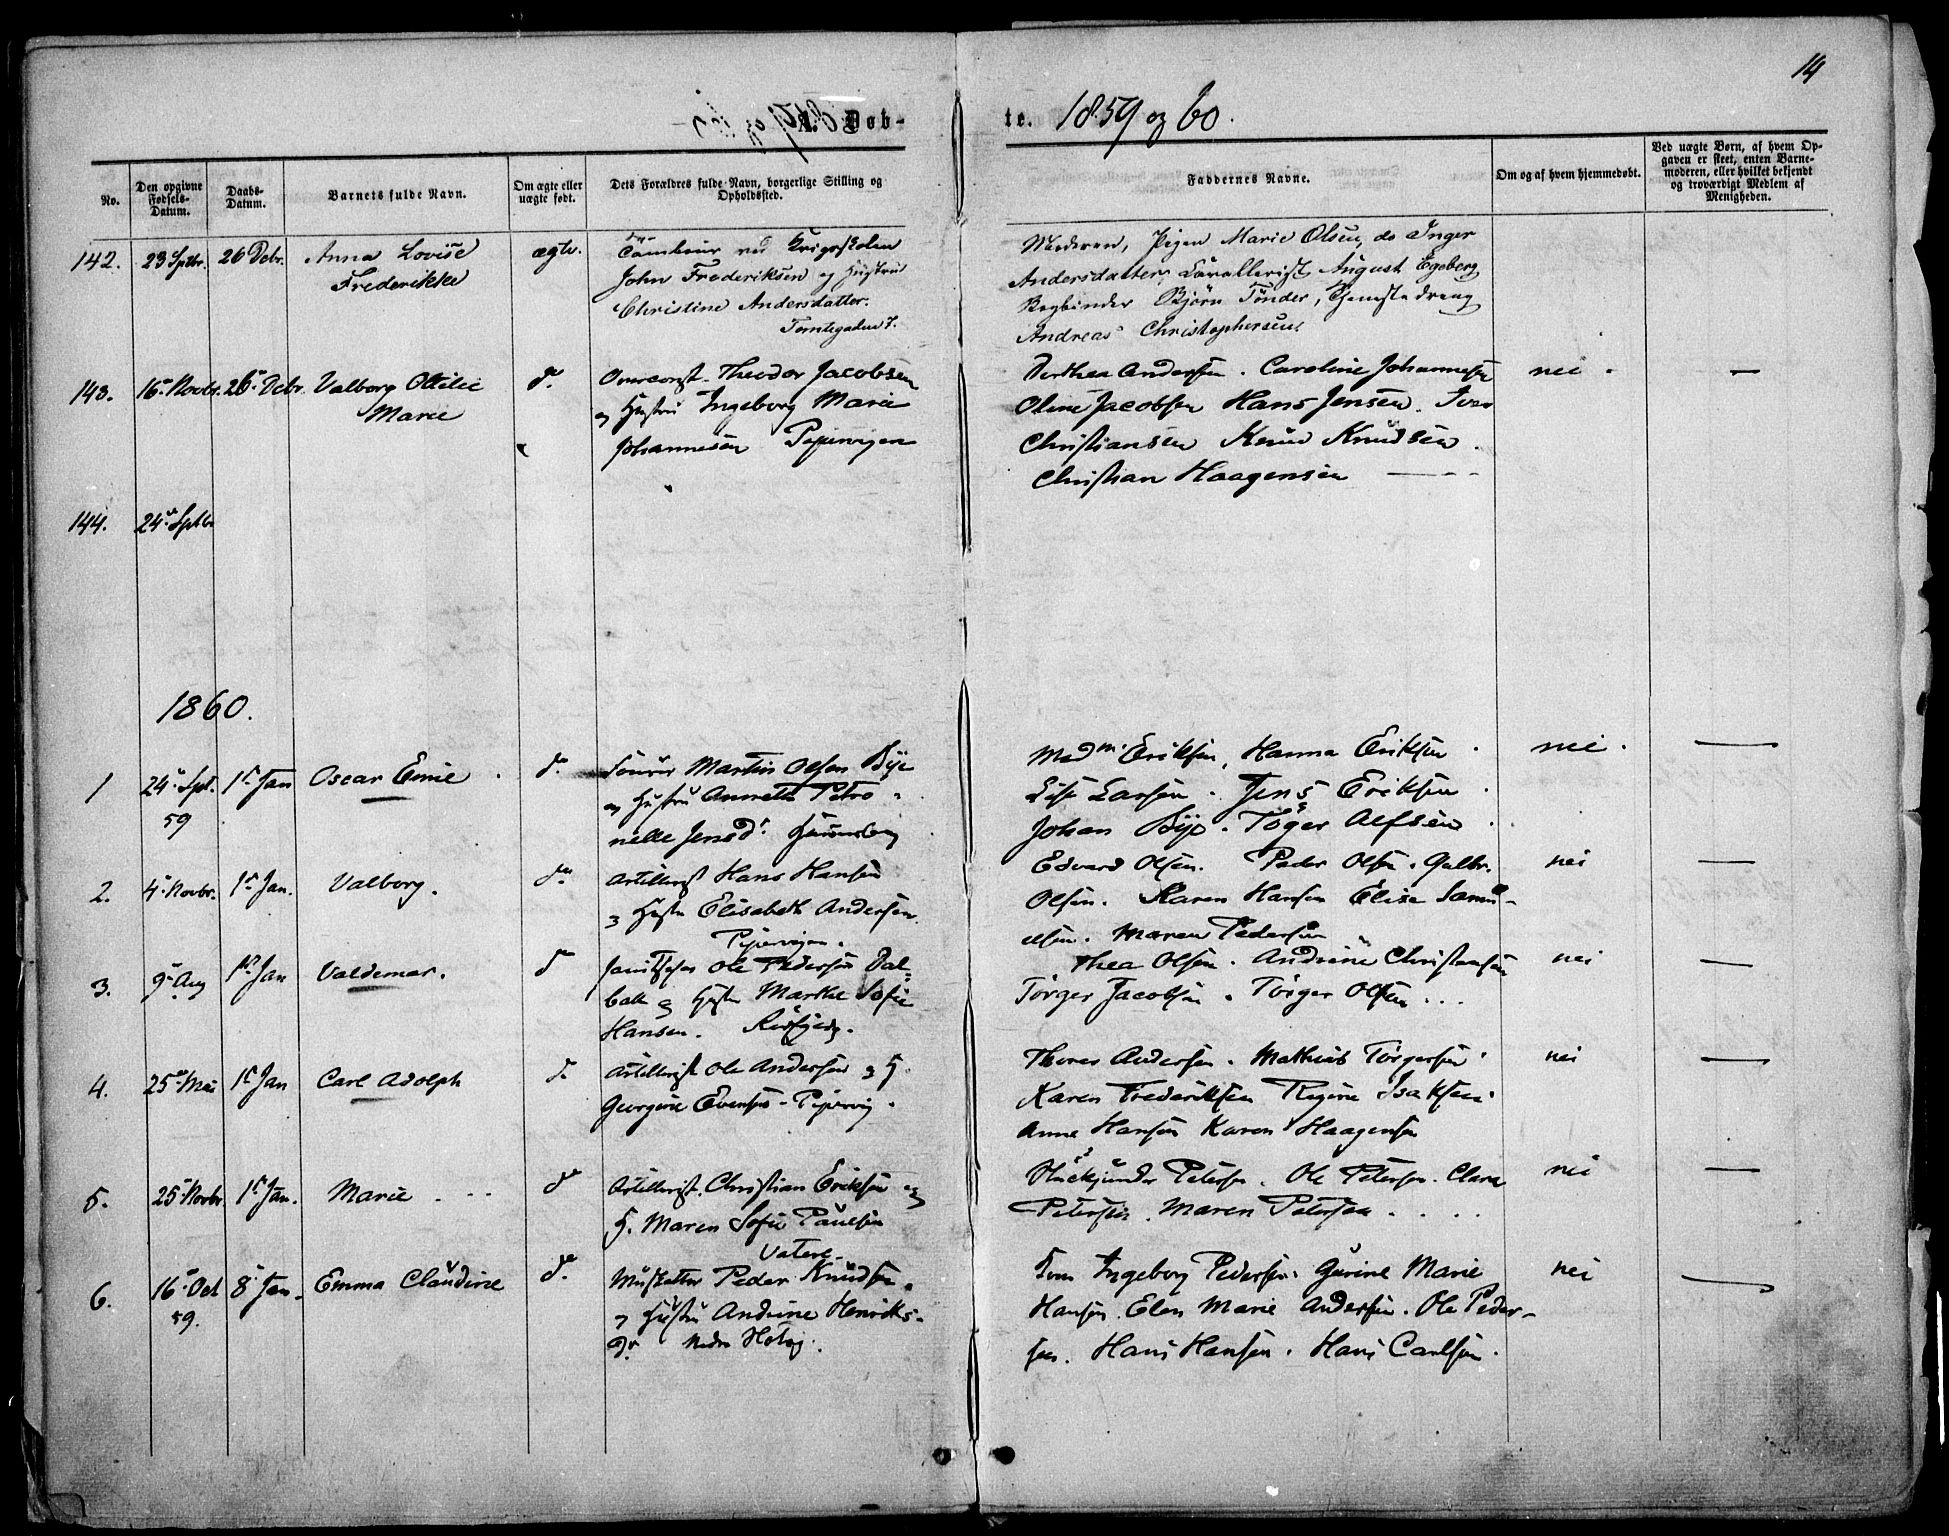 14
A. Døb-
te. 1859 og 60.
No.
Den opgivne Fødsels-Datum.
Daabs-Datum.
Barnets fulde Navn.
Om ægte eller uægte født.
Dets Forældres fulde Navn, borgerlige Stilling og Opholdssted.
Faddernes Navne.
Om og af hvem hjemmedøbt.
Ved uægte Børn, af hvem Opgaven er skeet, enten Barnemoderen, eller hvilket bekjendt og troværdigt Medlem af Menigheden.
142. 23 Sptbr. 26 Debr. Anna Lovise ægte. Tambour ved Krigsskolen
Frederikke John Frederiksen og Hustru
Christine Andersdatter.
Tomtegaden 7.
Moderen, Pigen Marie Olsen, do Inger
Andersdatter, Cavallerist August Egeberg
Bogbinder Bjørn Tønder, Tjenestedreng
Andreas Christophersen
143. 16 Novbr. 26 Debr. Valborg Ottilie d. Theodor Jacobsen
Marie og Hustru Ingeborg Marie
Johannesen Pipervigen
Dorthea Andersen. Caroline Johannesen nei. —
Oline Jacobsen Hans Jensen. Iver
Christiansen Knud Knudsen.
Christian Haagensen
144. 24 Sptbr
1860.
1 24 Spt. 1 Jan Oscar Emil d. Martin Olsen Bye
59 og Hustru Annette Petro-
nelle Jensd.
Mad. Eriksen, Hanna Eriksen nei. —
Lise Larsen. Jens Eriksen
Johan Bye. Tøger Alfsen
2. 4 Novbr. 1 Jan. Valborg. do Artillerist Hans Hansen
og Hustru Elisabeth Andersen.
Pipervigen.
Edvard Olsen. Peder Olsen. Gulbr. nei —
Olsen. Karen Hansen Elise Samu-
elsen. Maren Pedersen
3. 9 Aug 1 Jan Valdemar. d Ole Pedersen Dal-
bak og Hustru Marthe Sofie
Hansen.
Thea Olsen. Andrine Christensen nei —
Tørger Jacobsen. Tørger Olsen
4. 25 Mai 1 Jan Carl Adolph d. Artillerist Ole Andersen og H.
Georgine Evensen - Pipervig.
Thores Andersen. Mathias Torgersen nei —
Karen Frederiksen Regine Isaksen.
Anne Hansen Karen Haagensen
5. 25 Novbr 1 Jan. Marie d Artillerist. Christian Eriksen og
H. Maren Sofie Paulsen
Vaterl.
Petersen. Ole Petersen. Clara nei —
Petersen. Maren Petersen
6. 16 Oct 8 Jan. Emma Claudine d. Musketter Peder Knudsen
59. og Hustru Andrine Henriks-
dr.
Ingeborg Pedersen. Gurine Marie nei —
Hansen. Elen Marie Andersen. Ole Peder-
sen. Hans Hansen. Hans Carlsen.